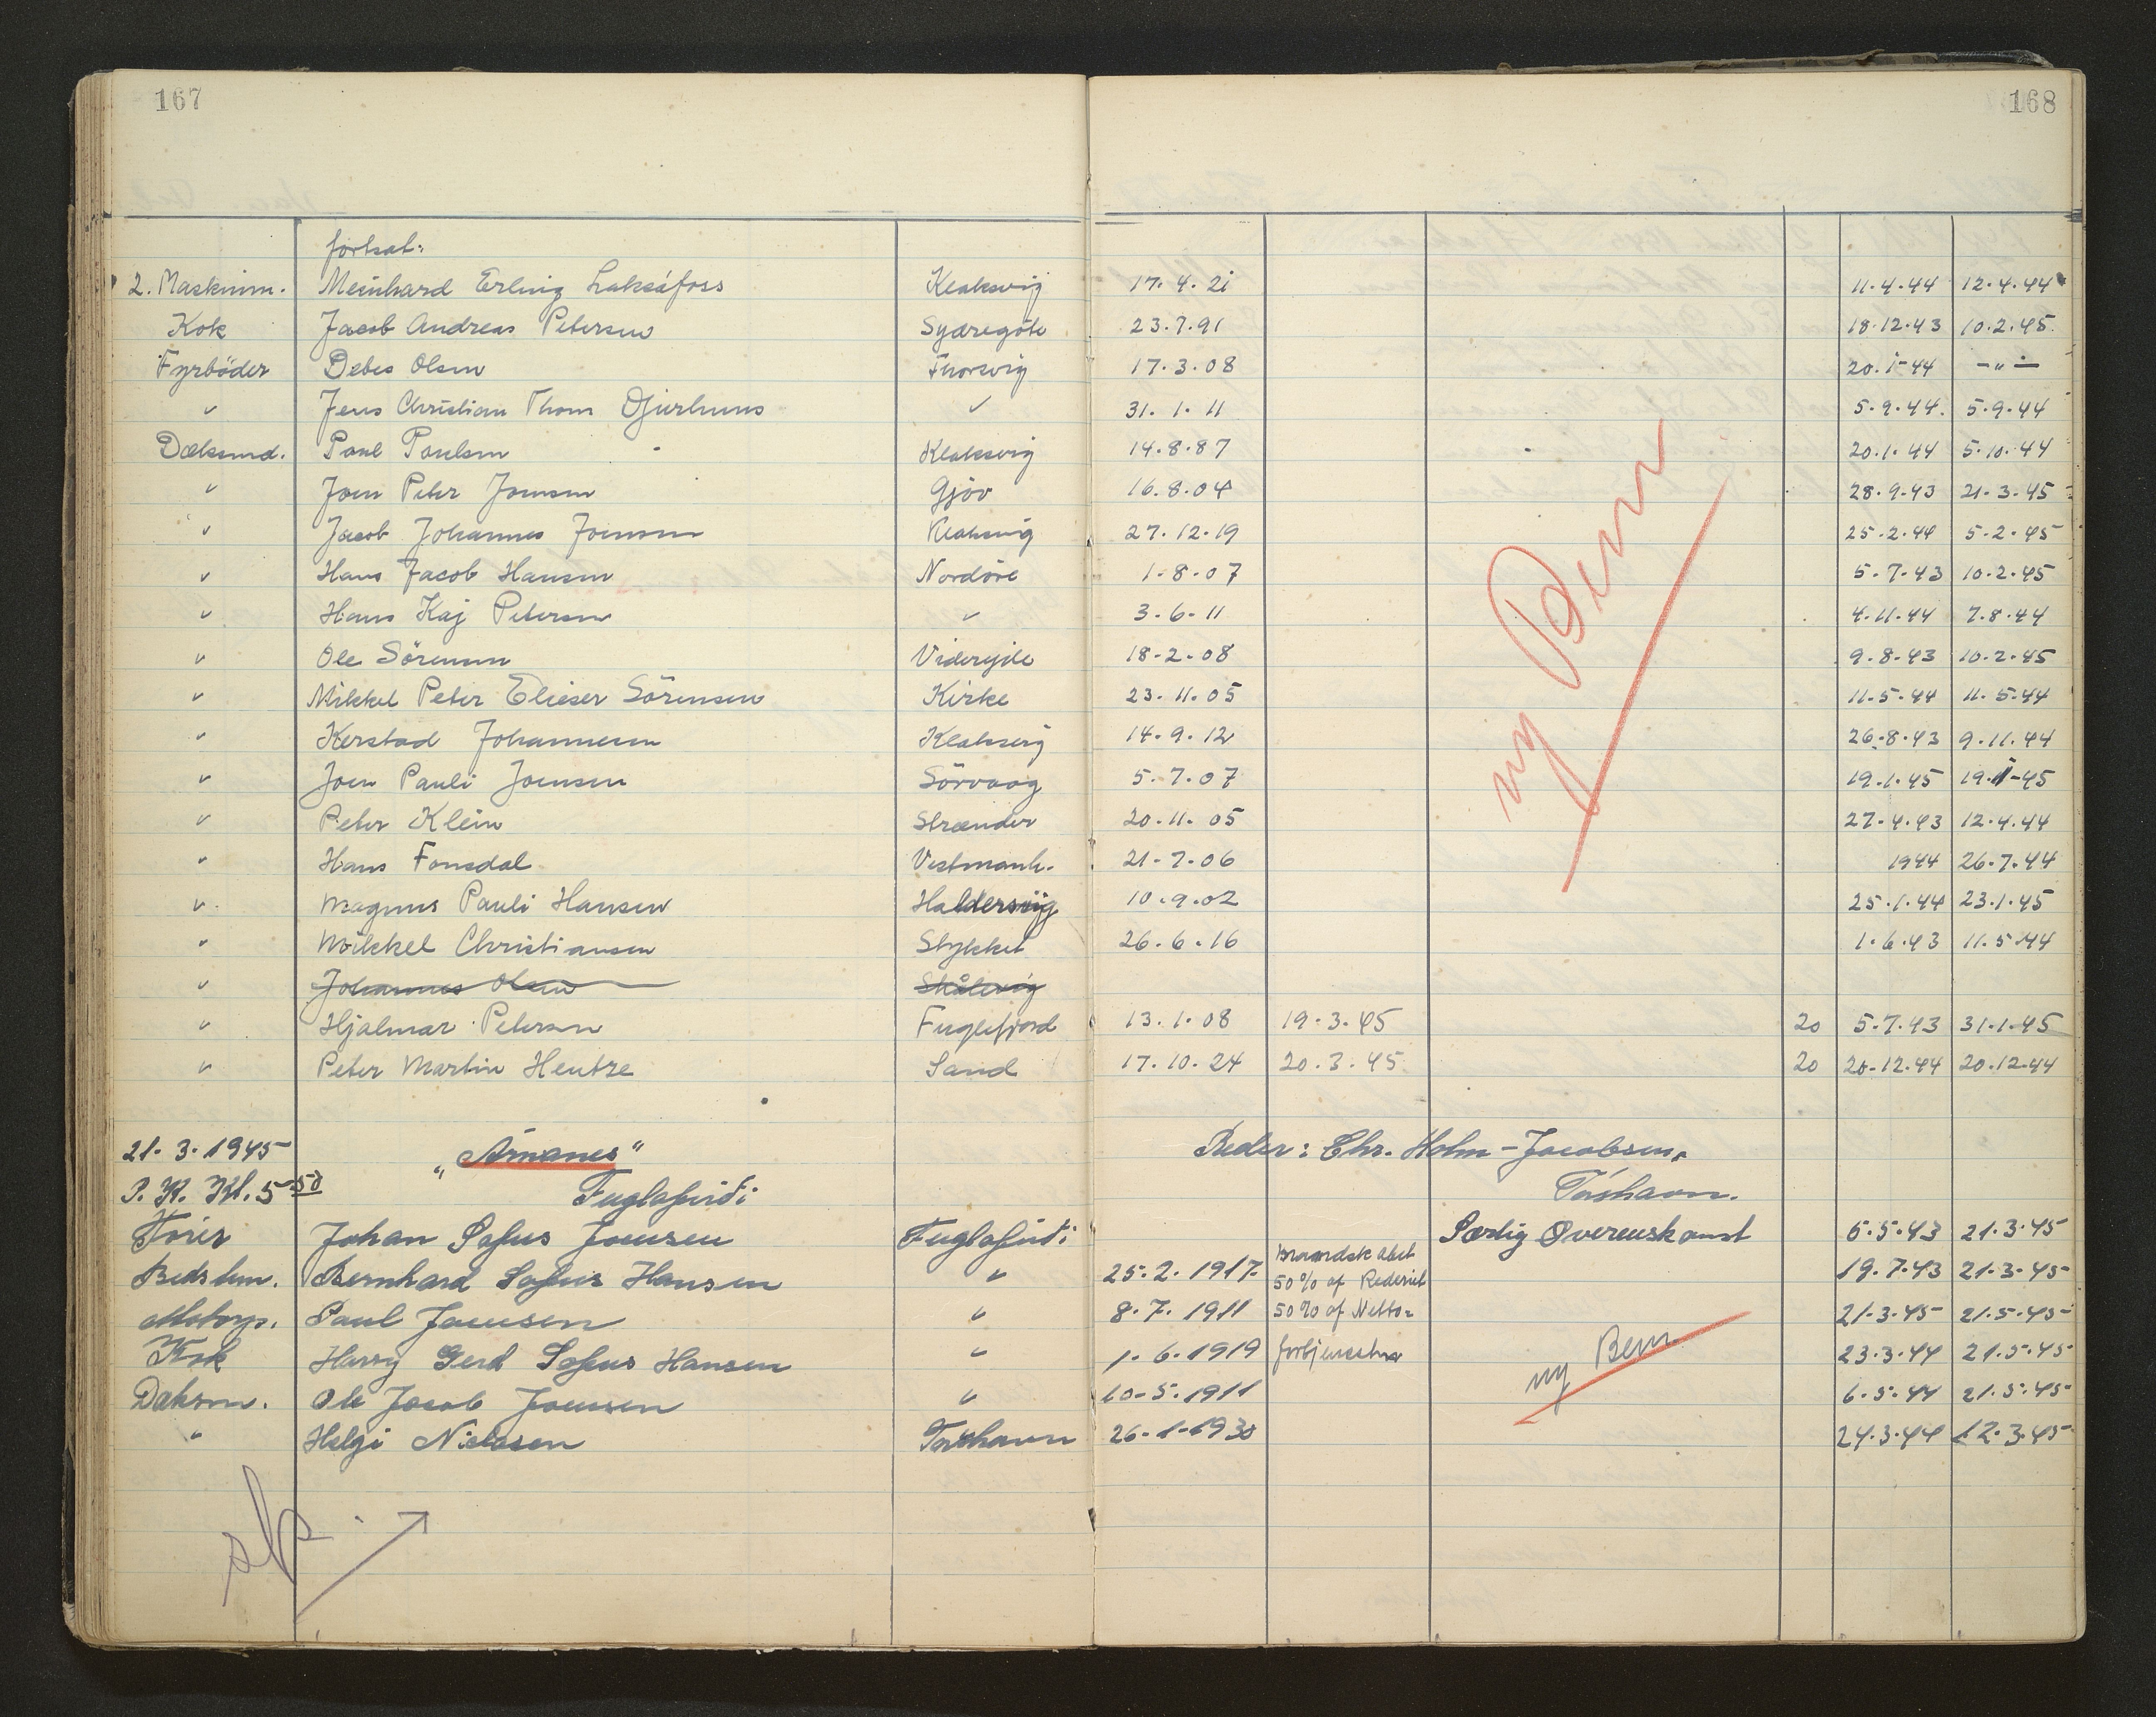 167
168
fortsat:
2. Maskinm. Meinhard Erling Laksáfoss Klaksvig 17.4.21 11.4.44 12.4.44
Kok Jacob Andreas Petersen Sydregöte 23.7.91 18.12.43 10.2.45.
Fyrböder Debes Olsen 17.3.08 20.1-44 -"-
" Jens Christian Thom Djurhuus " 31.1.11 5.9.44. 5.9.44
Dæksmd. Poul Poulsen Klaksvig 14.8.87 20.1.44 5.10.44
" Joen Peter Joensen Gjóv 16.8.04 28.9.43 21.3.45
" Jacob Johannes Joensen Klaksvig 27.12.19 25.2.44 5.2.45
" Hans Jacob Hansen Nordöre 1.8.07 5.7.43 10.2.45
" Hans Kaj Petersen " 3.6.11 4.11.44 7.8.44
" Ole Sörensen Viderejde 18.2.08 9.8.43 10.2.45
" Mikkel Peter Elieser Sörensen Kirke 23.11.05 11.5.44 11.5.44
" Kerstad Johannesen Klaksvig 14.9.12 26.8.43 9.11.44
" Joen Pauli Joensen Sörvaag 5.7.07 19.1.45 19.1-45
" Peter Klein Strænder 20.11.05 27.4.43 12.4.44
" Hans Fonsdal Vestmanh. 21.7.06 1944 26.7.44
" Magnus Pauli Hansen Haldersvig 10.9.02 25.1.44 23.1.45
" Mikkel Christiansen Stykket 26.6.16 1.6.43 11.5.44
" Johannes Olsen Skålevig
" Hjalmar Petersen Fuglefjord 13.1.08 19.3.45 20 5.7.43 31.1.45
" Peter Martin Hentze Sand 17.10.24 20.3.45 20 20.12.44 20.12.44
ny Bem
21.3.1945 "Árnanes" Reder: Chr. Holm-Jacobsen,
P. K. Kl. 5 50 Fuglafirði Tórshavn.
Förer Johan Sofus Joensen Fuglafirði Særlig Overenskomst 6.5.43 21.3.45
Bedstm. Bernhard Sofus Hansen " 25.2.1917. Mandskabet 50% af Rederiet 19.7.43 21.3.45
Motorp. Paul Joensen " 8.7.1911 50% af Netto- 21.3.45 21.5.45
Kok Harry Gerh Sofus Hansen " 1.6.1919 fortjenesten 23.3.44 21.5.45
Dæksm. Ole Jacob Joensen " 10-5.1911 6.5.44 21.5.45
" Helgi Nielasen Tórshavn 26-1-1930 24.3.44 12.3.45
ny Bem